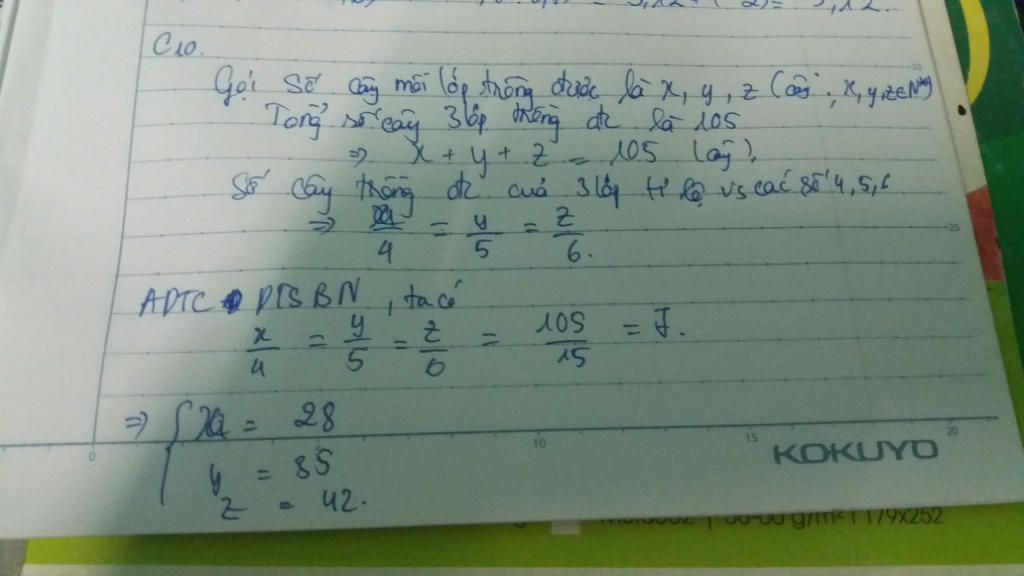 C10.
Gọi số cây mỗi lớp trồng được là x, y, z (cây; x, y, z ∈ N*)
Tổng số cây 3 lớp trồng đc là 105
⇒ x + y + z = 105 (cây).
Số cây trồng đc của 3 lớp tỉ lệ vs các số 4, 5, 6
⇒ x/4 = y/5 = z/6.
ADTC DTSBN, ta có
x/4 = y/5 = z/6 = 105/15 = 7.
⇒ { x = 28
y = 35
z = 42.
0 10 15 20
25
30
KOKUYO
g/m² | 179x252